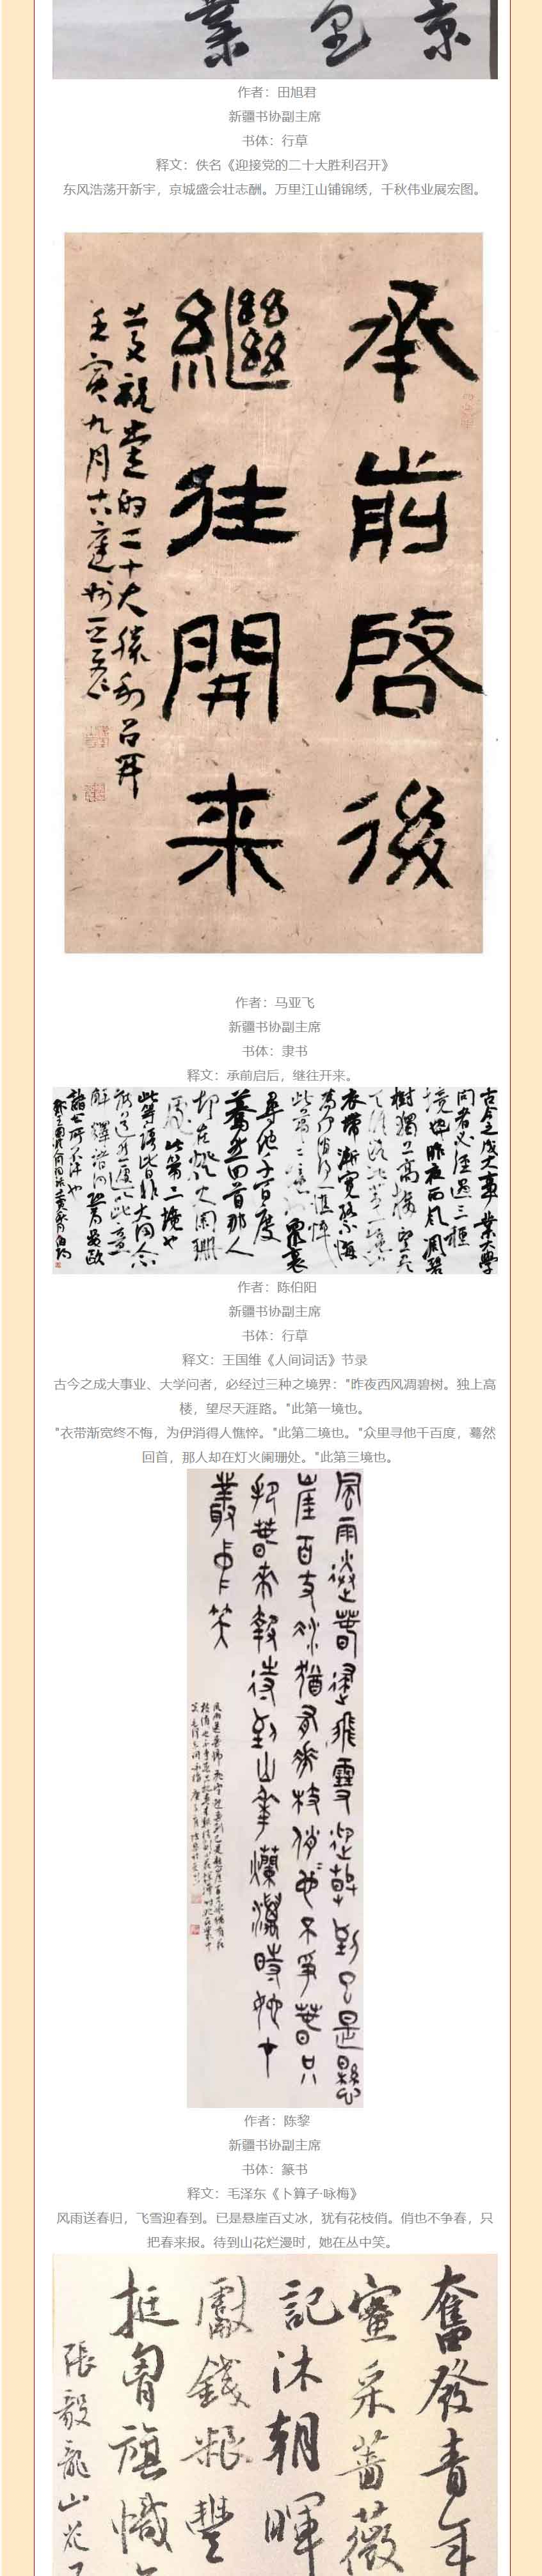 業 宏 京
作者：田旭君
新疆书协副主席
书体：行草
释文：佚名《迎接党的二十大胜利召开》
东风浩荡开新宇，京城盛会壮志酬。万里江山铺锦绣，千秋伟业展宏图。
承前啓後
繼往開来
喜迎党的二十大勝利召开
壬寅九月
作者：马亚飞
新疆书协副主席
书体：隶书
释文：承前启后，继往开来。
古今之成大事業大學
问者必经過三種
境也昨夜西风凋碧
樹獨上高樓望盡
天涯路此第一境也
衣帶漸寬终不悔
為伊消得人憔悴
此第二境也眾裏
尋他千百度
驀然回首那人
却在燈火闌珊
處此第三境也
此等语皆非大词人不
能道然遽以此意
解釋諸词恐為晏歐
諸公所不许也
作者：陈伯阳
新疆书协副主席
书体：行草
释文：王国维《人间词话》节录
古今之成大事业、大学问者，必经过三种之境界："昨夜西风凋碧树。独上高
楼，望尽天涯路。"此第一境也。
"衣带渐宽终不悔，为伊消得人憔悴。"此第二境也。"众里寻他千百度，蓦然
回首，那人却在灯火阑珊处。"此第三境也。
風雨送春歸飛雪迎春到已是懸
崖百丈冰猶有花枝俏俏也不爭春只
把春來報待到山花爛漫時她在
叢中笑
作者：陈黎
新疆书协副主席
书体：篆书
释文：毛泽东《卜算子·咏梅》
风雨送春归，飞雪迎春到。已是悬崖百丈冰，犹有花枝俏。俏也不争春，只
把春来报。待到山花烂漫时，她在丛中笑。
奮發青年
蜜采薔薇
記沐朝暉
獻錢糧豐
挺胃旗幟
張毅龍山花